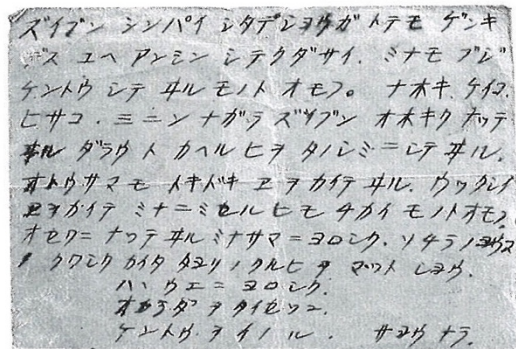 ズイブン シンパイ シタデショウガ トテモ ゲンキ
デス ユヘ アンミン シテクダサイ. ミナモ ブジ
ケントウ シテ ヰル モノト オモフ。 ナオキ. ケイコ.
ヒサコ. ミニン ナガラ ズイブン オオキク ナッテ
ヰル ダラウト カヘル ヒヲ タノシミニシテ ヰル.
オトウサマモ トキドキ ヱヲ カイテ ヰル. ウツクシイ
ヱヲカイテ ミナニミセル ヒモ チカイ モノトオモフ.
オセワニ ナッテ ヰル ミナサマニ ヨロシク. ソチラノヨウス
クワシク カイタ タヨリノ クルヒヲ マツト シヨウ.
ハハウエニ ヨロシク.
オカラダヲ タイセツニ.
ケントウヲ イノル. サヨウナラ.